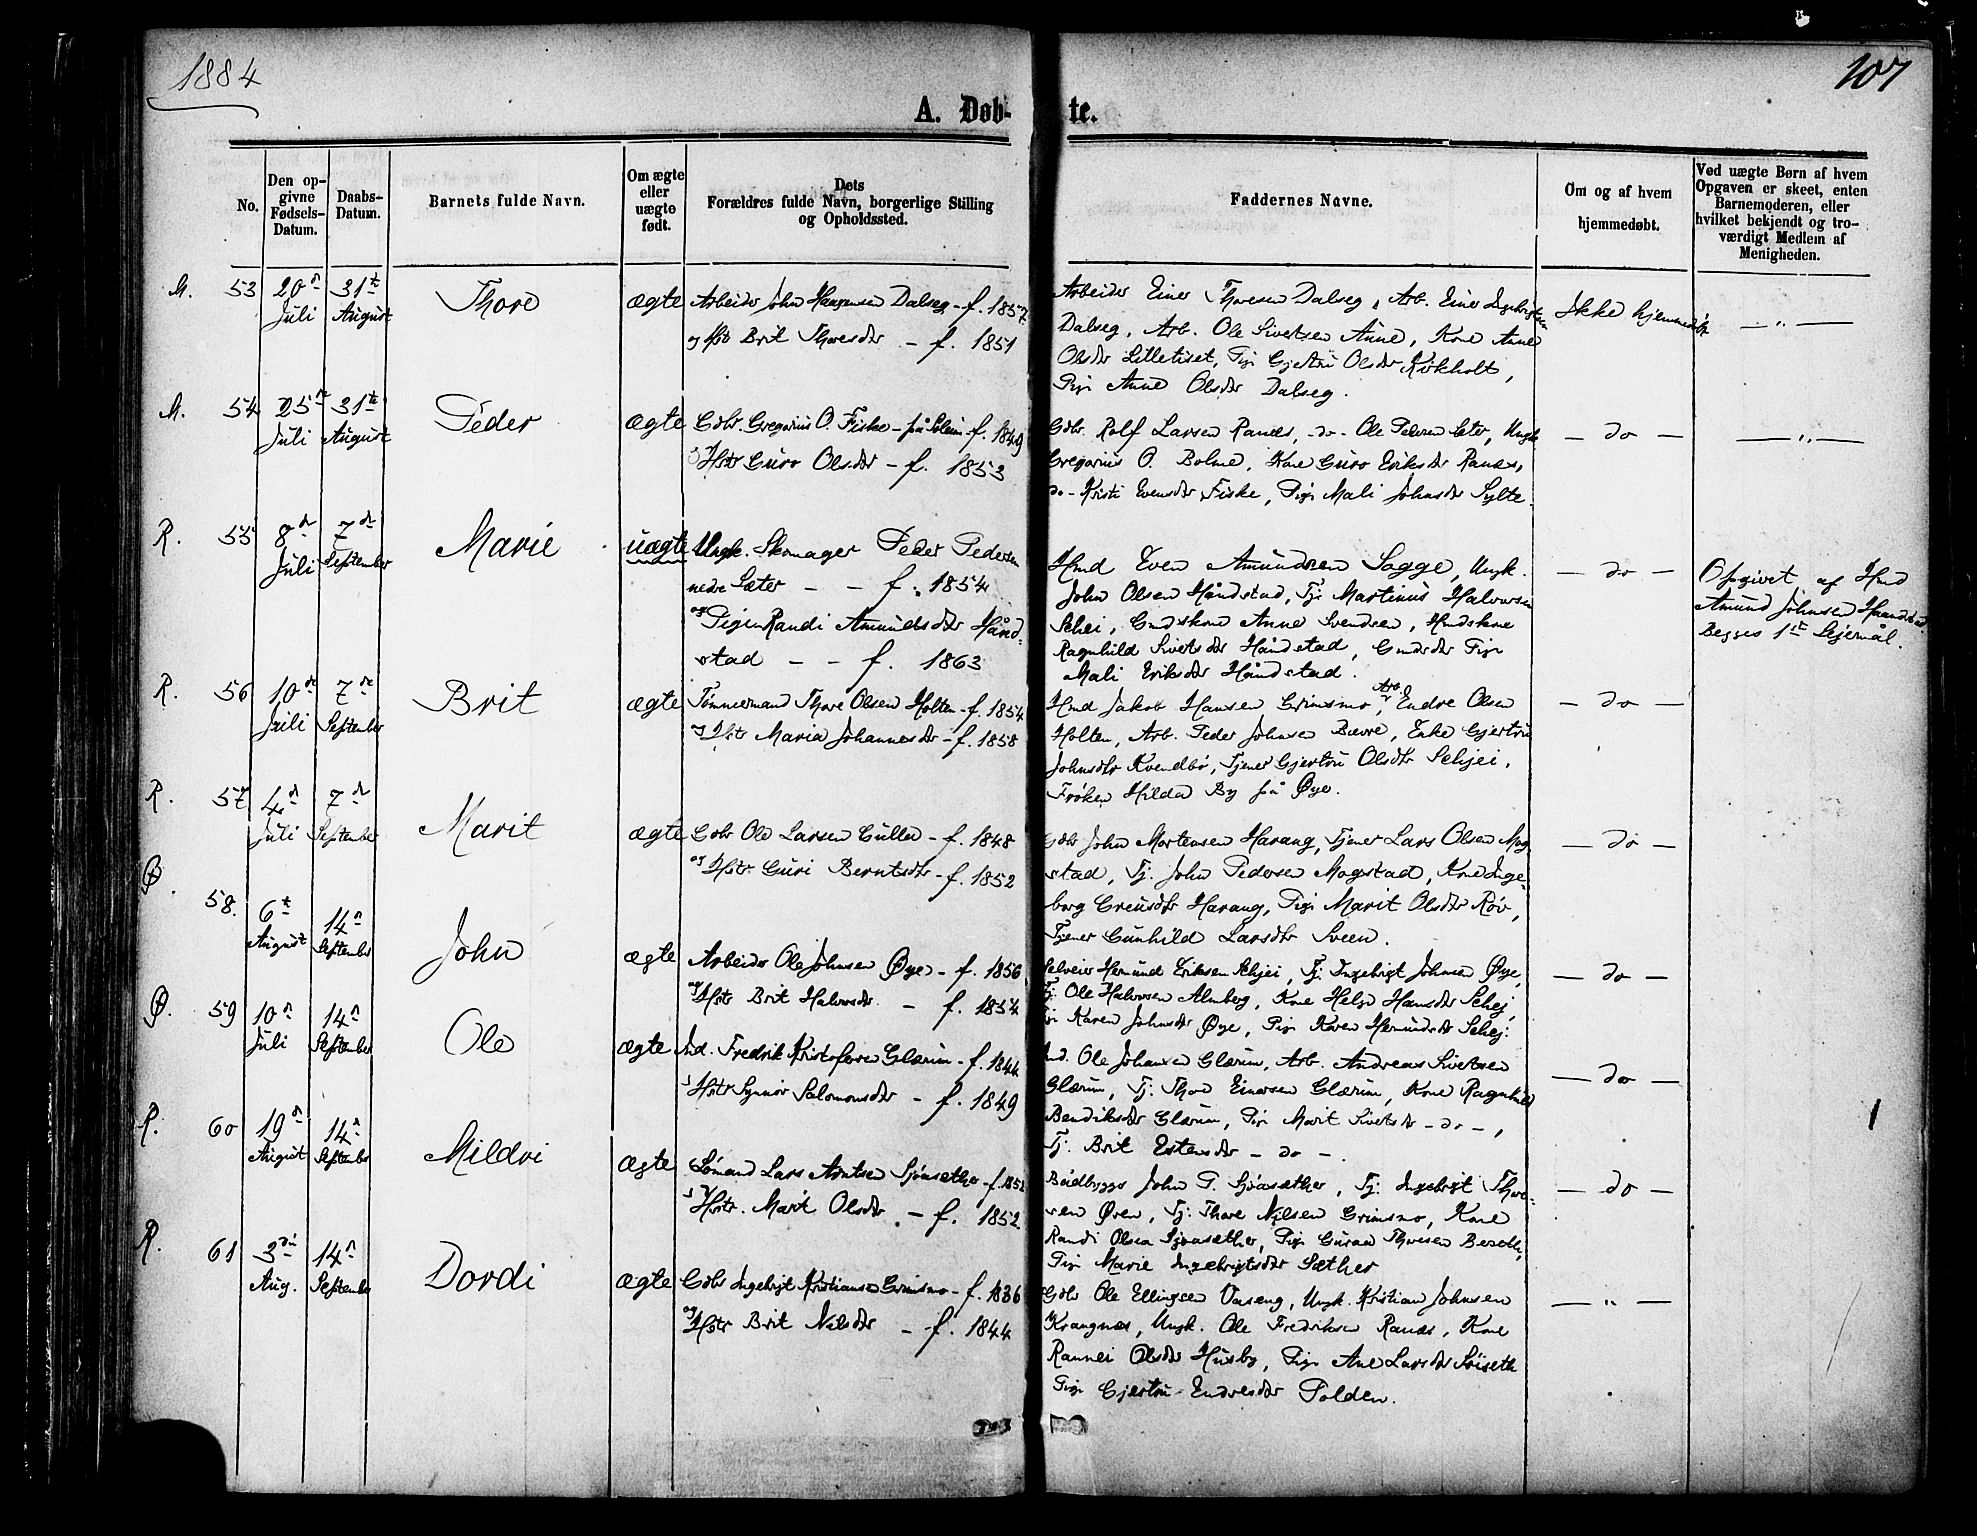 1884
107
A. Døb-
te.
No.
Den op-
givne
Fødsels-
Datum.
Daabs-
Datum.
Barnets fulde Navn.
Om ægte
eller
uægte
født.
Dets
Forældres fulde Navn, borgerlige Stilling
og Opholdssted.
Faddernes Navne.
Om og af hvem
hjemmedøbt.
Ved uægte Børn af hvem
Opgaven er skeet, enten
Barnemoderen, eller
hvilket bekjendt og tro-
værdigt Medlem af
Menigheden.
M. 53 20de Juli 31te August Thore ægte
Arbeider John Haagensen Dalseg - f. 1857
og Hstr Brit Thoresdtr - f. 1851
Arbeider Einer Thoresen Dalseg, Arb. Einer Ingebrigtsen
Dalseg, Arb. Ole Sivertsen Aune, Kone Anne
Olsdtr Litletiset, Pige Gjertru Olsdtr Kirkholt,
Pige Anne Olsdtr Dalseg.
Ikke hjemmedøbt
— " —
M. 54 25de Juli 31te August Peder ægte
Gdbr. Gregorius O. Fiske - på Solem - f. 1849
og Hstr Guro Olsdtr - f. 1853
Gdbr. Rolf Larsen Ranæs, - do - Ole Pedersen Sæter, Ungk.
Gregorius O. Bolme, Kone Guro Eriksdtr Ranæs,
do - Kristi Evensdtr Fiske, Pige Mali Johnsdtr Sylte.
— do —
— " —
R. 55 8de Juli 7de September Marie uægte
Ungk. Skomager Peder Pedersen
nedre Sæter - - f. 1854
og Pigen Randi Amundsdtr Hånd-
stad - - f. 1863
Hmd Even Amundsen Sagge, Ungk.
John Olsen Håndstad, Tj. Martinus Halvorsen
Schei, Gmdskone Anne Svendsen, Hmdskone
Ragnhild Sivertsdtr Håndstad, Gmdsdtr Pige
Mali Eriksdtr Håndstad.
— do —
Opgivet af Hmd
Amund Johnsen Haandstad.
Begges 1ste Leiermål.
R. 56 10de Juli 7de September Brit ægte
Tømmermand Thore Olsen Holten - f. 1854
og Hstr Maria Johannesdtr - f. 1858
Hmd Jakob Hansen Grimsmo, Arb. Endre Olsen
Holten, Arb. Peder Johnsen Bævre, Enke Gjertru
Johnsdtr Kvendbø, Tjener Gjertru Olsdtr Schjei,
Frøken Hilda By på Øye.
— do —
R. 57 4de Juli 7de September Marit ægte
Gdbr Ole Larsen Gulla - f. 1848
og Hstr. Guri Berntsdtr - f. 1852
Gdbr John Mortensen Harang, Tjener Lars Olsen Mog-
stad, Tj. John Pedersen Mogstad, Kone Inge-
borg Greusdtr Harang, Pige Marit Olsdtr Røv,
Tjener Gunhild Larsdtr Sveen.
— do —
Ø. 58. 6te August 14de September John ægte
Arbeider Ole Johnsen Øye - f. 1856
og Hstr Brit Halvorsdtr. - f. 1854
Selveier Hermund Eriksen Schjei, Tj. Ingebrigt Johnsen Øye,
Tj. Ole Halvorsen Almberg, Kone Helge Hansdtr Schej,
Pige Karen Johnsdtr Øye, Pige Karen Hermundsdtr Schej.
— do —
Ø. 59 10de Juli 14de September Ole ægte
Ind. Fredrik Kristofersen Glærum - f. 1844
og Hstr Synnøv Salomonsdtr - f. 1849
Ind. Ole Johansen Glærum, Arb. Andreas Sivertsen
Glærum, Tj. Thore Einersen Glærum, Kone Ragnhild
Bendiksdtr Glærum, Pige Marit Sivertsdtr - do -,
Tj. Brit Estensdtr - do -.
— do —
R. 60 19de August 14de September Mildri ægte
Sømand Lars Arntsen Sjøasæther - f. 1852
og Hstr. Marit Olsdtr. - f. 1852
Baadbygger John P. Sjøasæther, Tj. Ingebrigt Thore-
sen Øren, Tj. Thore Nilsen Grimsmo, Kone
Randi Olsen Sjøasæther, Pige Guraa Thoresen
Pige Marie Ingebrigtsdtr Sæther
— do —
R. 61 3die Aug. 14de September Dordi ægte
Gdbr Ingebrigt Kristiansen Grimsmo - f. 1836
og Hstr Brit Nilsdtr - f. 1844
Gdbr Ole Ellingsen Vaseng, Ungk. Kristian Johnsen
Krangnæs, Ungk. Ole Fredriksen Ranæs, Kone
Rannei Olsdtr Husby, Pige Ane Larsdtr Søiseth
Pige Gjertru Endresdtr Polden.
— " —